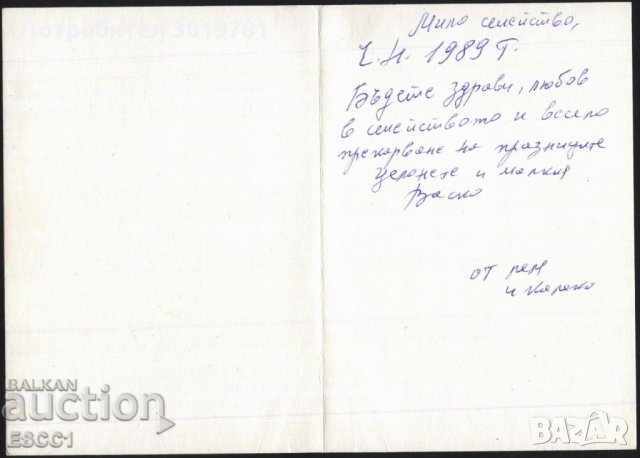 Потребител 3019701
Мило семейство,
Ч.Н. 1989 г.
Бъдете здрави, любов
в семейството и весело
прекарване на празниците
Целонете и малкия
Васко
от
и
BALKAN
auction
ESCC1
BAZAR